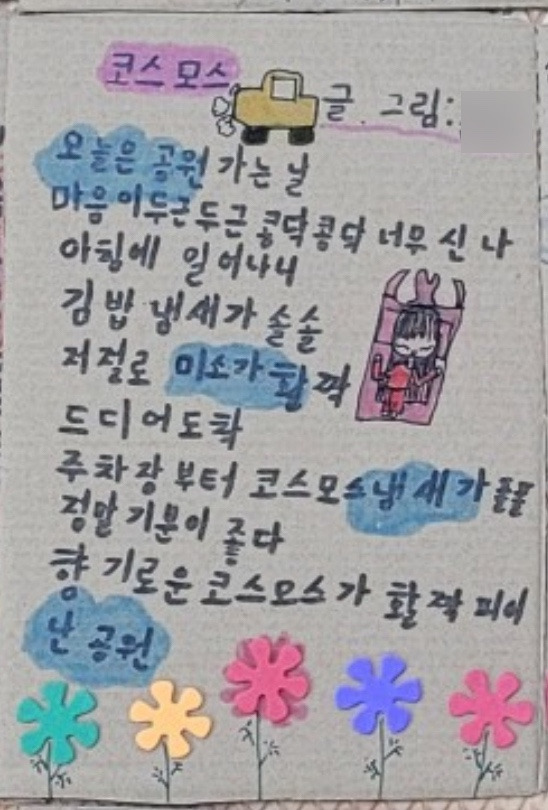 코스모스 글. 그림:
오늘은 공원 가는 날
마음이 두근두근 콩닥콩닥 너무 신나
아침에 일어나니
김밥 냄새가 솔솔
저절로 미소가 활짝
드디어 도착
주차장부터 코스모스 냄새가 폴폴
정말 기분이 좋다
향기로운 코스모스가 활짝 피어
난 공원